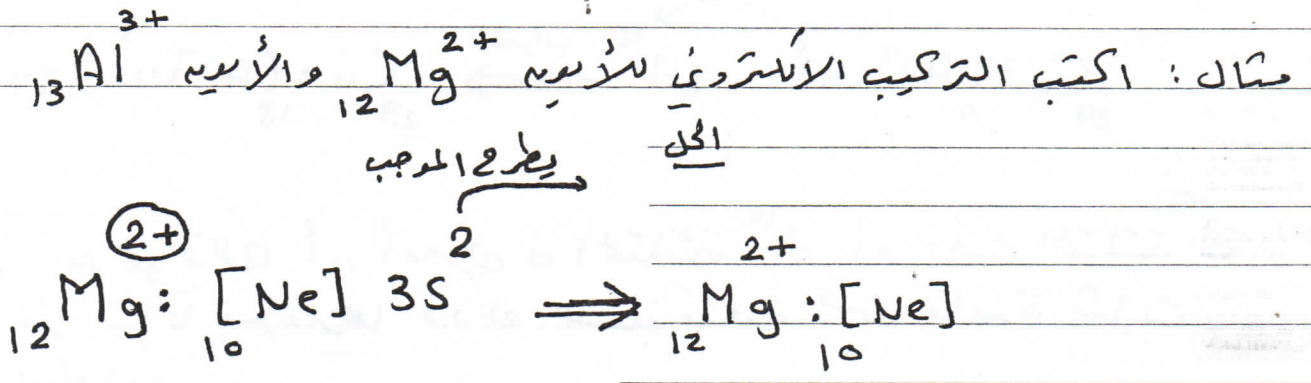 مثال : اكتب التركيب الألكتروني للأيون ₁₂Mg²⁺ والأيون ₁₃Al³⁺
الحل
يطرح الموجب
₁₂Mg²⁺: [₁₀Ne] 3S² ⟹ ₁₂Mg²⁺ : [₁₀Ne]